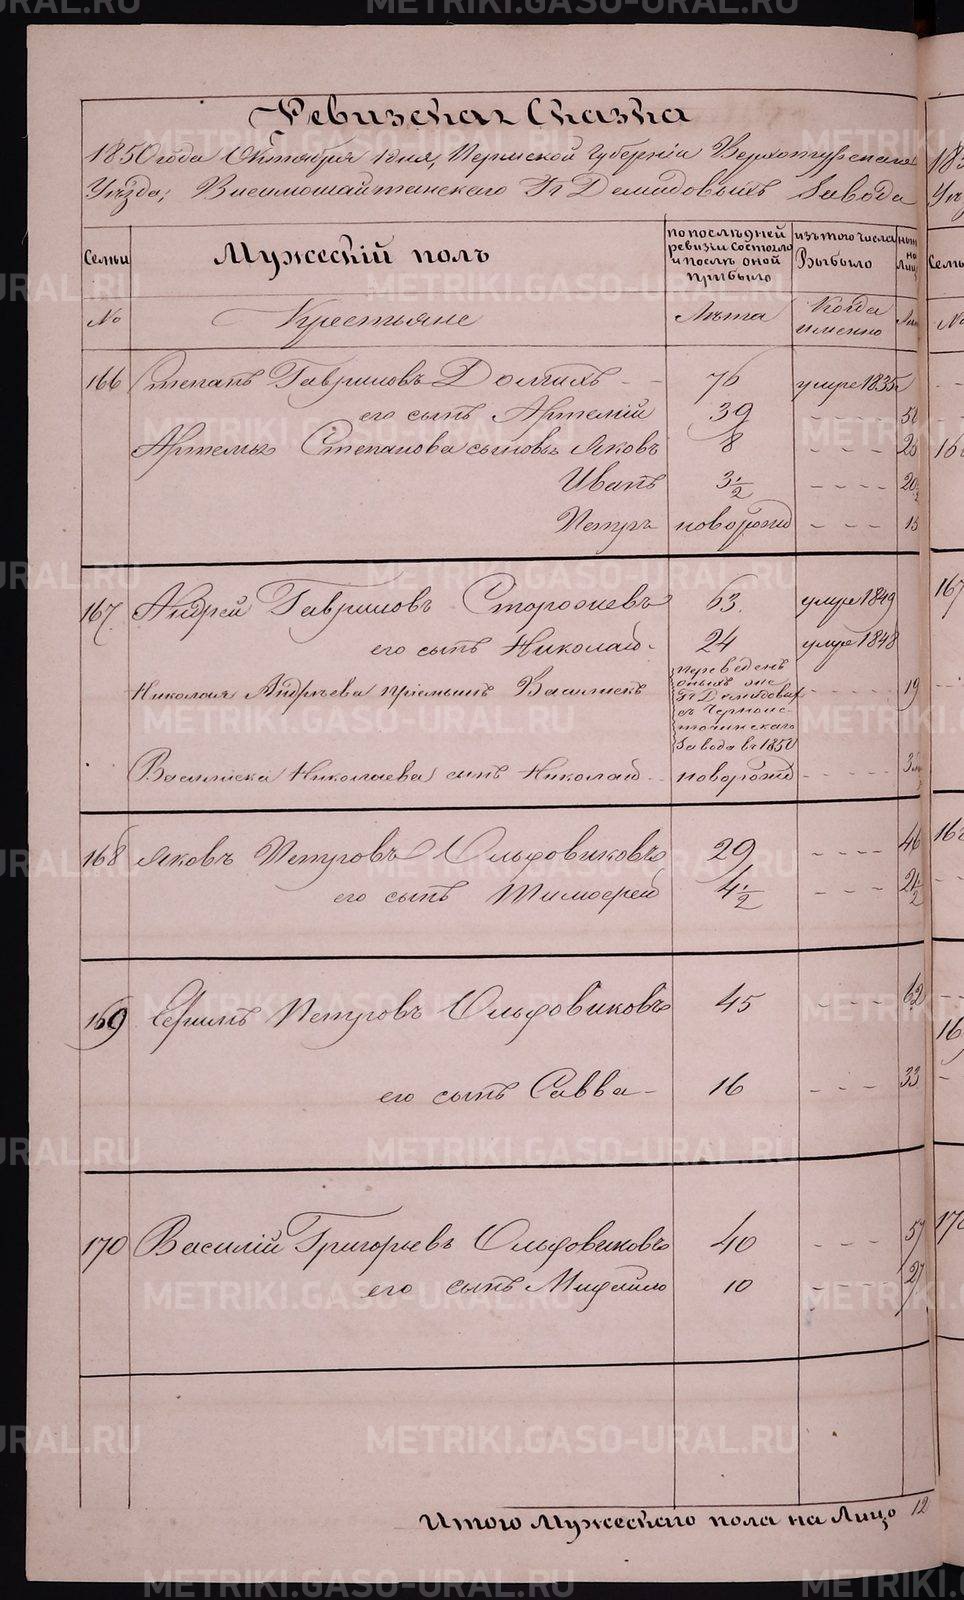 Ревизская Сказка
1850 года Октября 1 дня, Пермской Губерніи Верхотурскаго
Уѣзда, Висимошайтанскаго Гг Демидовыхъ Завода
Семьи
Мужескій полъ
по послѣдней ревизіи состояло и послѣ оной прибыло
изъ того числа Выбыло
на Лицо
№
Крестьяне
Лѣта
Когда именно
166 Степанъ Гавриловъ Долгихъ 76 умре 1835
его сынъ Артемій 39
Артемья Степанова сыновья Яковъ 8
Иванъ 3 1/2
Петръ новорожд
167 Андрей Гавриловъ Сторожевъ 63 умре 1849
его сынъ Николай 24 умре 1848
Николая Андреева пріемышъ Василискъ 19
Переведенъ
Гг Демидовых
съ Черноис-
точинскаго
Завода въ 1850
Василиска Николаева сынъ Николай новорожд
168 Яковъ Петровъ Ольховиковъ 29 46
его сынъ Тимофей 4 1/2 21 1/2
169 Ефимъ Петровъ Ольховиковъ 45 62
его сынъ Савва 16 33
170 Василій Григорьевъ Ольховиковъ 40 57
его сынъ Михайло 10 27
Итого Мужескаго пола на Лицо 12
METRIKI.GASO-URAL.RU